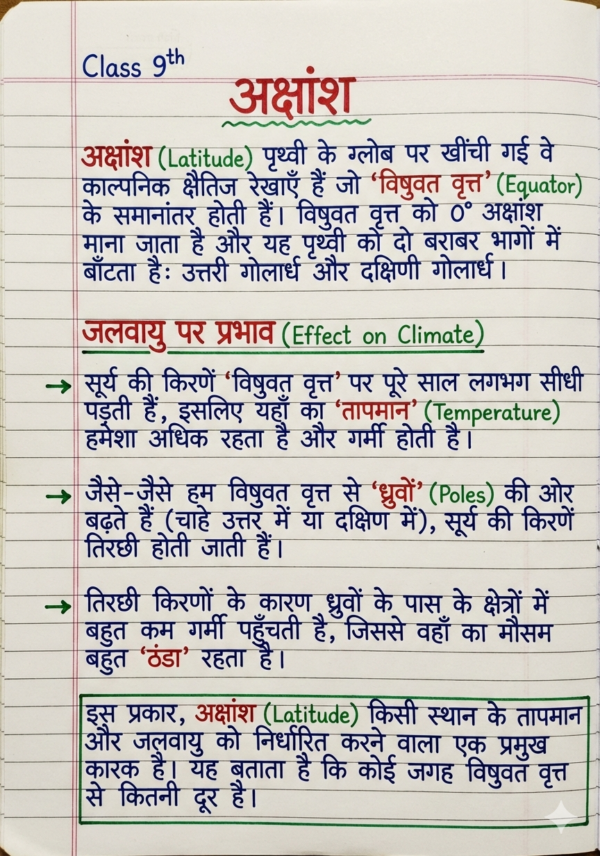 Class 9th
अक्षांश
अक्षांश (Latitude) पृथ्वी के ग्लोब पर खींची गई वे
काल्पनिक क्षैतिज रेखाएँ हैं जो ‘विषुवत वृत्त’ (Equator)
के समानांतर होती हैं। विषुवत वृत्त को 0° अक्षांश
माना जाता है और यह पृथ्वी को दो बराबर भागों में
बाँटता है: उत्तरी गोलार्ध और दक्षिणी गोलार्ध।
जलवायु पर प्रभाव (Effect on Climate)
→ सूर्य की किरणें ‘विषुवत वृत्त’ पर पूरे साल लगभग सीधी
पड़ती हैं, इसलिए यहाँ का ‘तापमान’ (Temperature)
हमेशा अधिक रहता है और गर्मी होती है।
→ जैसे-जैसे हम विषुवत वृत्त से ‘ध्रुवों’ (Poles) की ओर
बढ़ते हैं (चाहे उत्तर में या दक्षिण में), सूर्य की किरणें
तिरछी होती जाती हैं।
→ तिरछी किरणों के कारण ध्रुवों के पास के क्षेत्रों में
बहुत कम गर्मी पहुँचती है, जिससे वहाँ का मौसम
बहुत ‘ठंडा’ रहता है।
इस प्रकार, अक्षांश (Latitude) किसी स्थान के तापमान
और जलवायु को निर्धारित करने वाला एक प्रमुख
कारक है। यह बताता है कि कोई जगह विषुवत वृत्त
से कितनी दूर है।